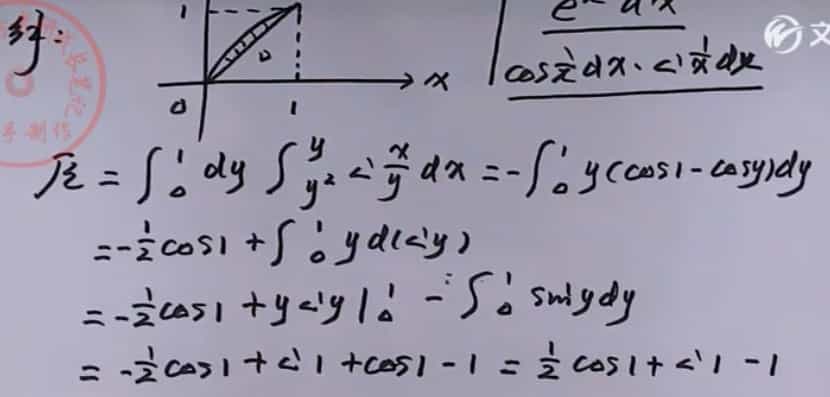 解:
1
D
x
0
1
e^{} dx
cos 1/x dx · sin 1/x dx
文
手制作
原 = ∫₀¹ dy ∫_{y²}^{y} sin x/y dx = -∫₀¹ y(cos1 - cosy)dy
= -1/2 cos1 + ∫₀¹ y d(siny)
= -1/2 cos1 + y siny |₀¹ - ∫₀¹ siny dy
= -1/2 cos1 + sin1 + cos1 - 1 = 1/2 cos1 + sin1 - 1